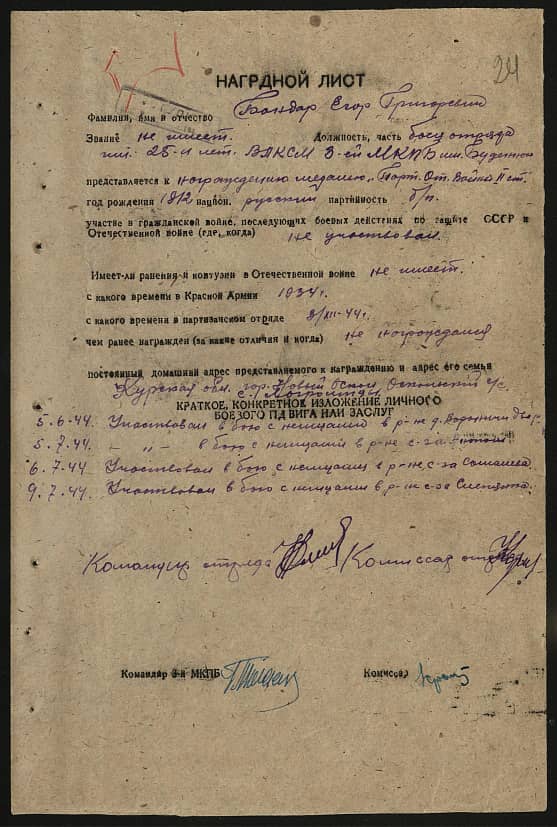 24
НАГРДНОЙ ЛИСТ
Фамилия, имя и отчество Бондар Егор Григоревич
Звание не имеет. Должность, часть боец отряда
им. 25-и лет. ВЛКСМ 3-ей МКПБ им. Буденного
представляется к награждению медалью „Парт. От. Война II ст.
год рождения 1912 национ. русский партийность б/п.
участие в гражданской войне, последующих боевых действиях по защите СССР и
Отечественной войне (где, когда) не участвовал
Имеет-ли ранения и контузии в Отечественной войне не имеет.
с какого времени в Красной Армии 1934 г.
с какого времени в партизанском отряде 8/XII-44 г.
чем ранее награжден (за какие отличия и когда) не награждался
постоянный домашний адрес представляемого к награждению и адрес его семьи
Курская обл. гор. Новый Оскол с/с.
с.
КРАТКОЕ, КОНКРЕТНОЕ ИЗЛОЖЕНИЕ ЛИЧНОГО
БОЕЗОГО ПД ВИГА ИЛИ ЗАСЛУГ
5.6.44. Участвовал в бою с немцами в р-не д.
5.7.44. —„— в бою с немцами в р-не с-за
6.7.44. Участвовал в бою с немцами в р-не с-за
9.7.44. Участвовал в бою с немцами в р-не с-за Слепянка.
Командир отряда Комиссар отр
Командир 3-й МКПБ Комиссар